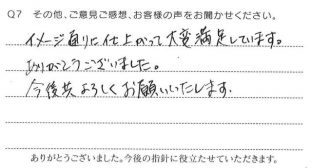 Q7 その他、ご意見ご感想、お客様の声をお聞かせください。
イメージ通りに仕上がって大変満足しています。
ありがとうございました。
今後共よろしくお願いいたします.
ありがとうございました。今後の指針に役立たせていただきます。